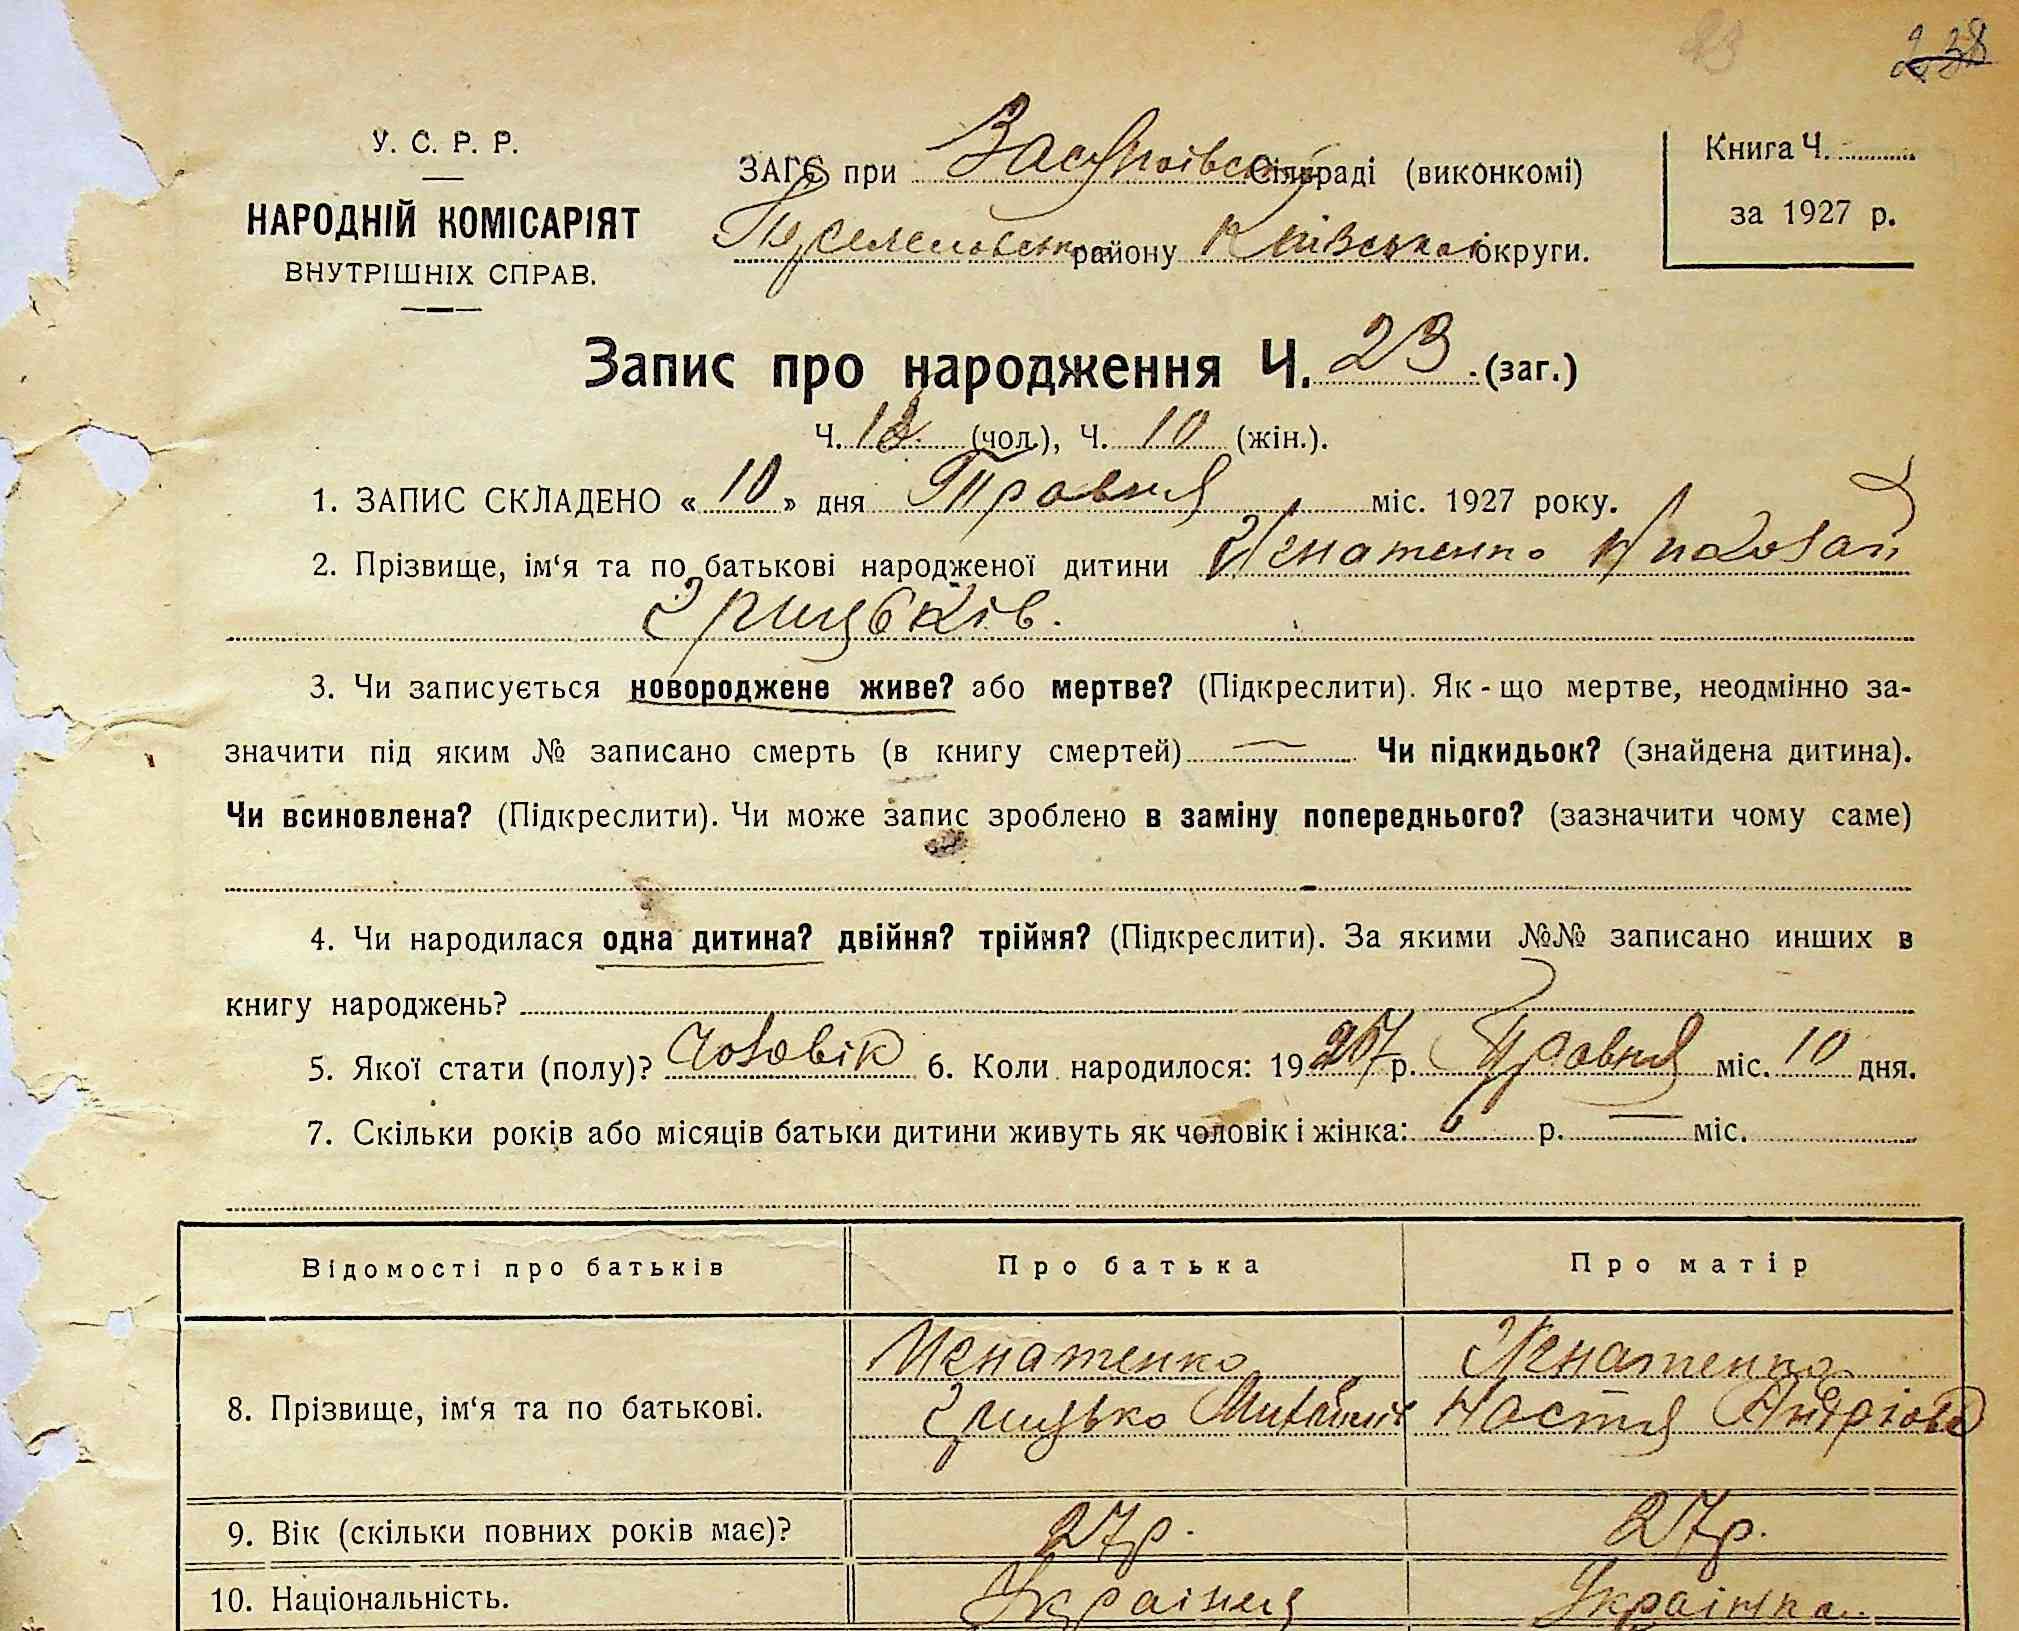 23 238
У. С. Р. Р.
НАРОДНІЙ КОМІСАРІЯТ
ВНУТРІШНІХ СПРАВ.
ЗАГС при Сільраді (виконкомі)
району Київської округи.
Книга Ч.
за 1927 р.
Запис про народження Ч. 23 (заг.)
Ч. 13 (чол.), Ч. 10 (жін.).
1. ЗАПИС СКЛАДЕНО « 10 » дня Травня міс. 1927 року.
2. Прізвище, ім‘я та по батькові народженої дитини Игнатенко Миколай
Грицьків.
3. Чи записується новороджене живе? або мертве? (Підкреслити). Як-що мертве, неодмінно за-
значити під яким № записано смерть (в книгу смертей) — Чи підкидьок? (знайдена дитина).
Чи всиновлена? (Підкреслити). Чи може запис зроблено в заміну попереднього? (зазначити чому саме)
4. Чи народилася одна дитина? двійня? трійня? (Підкреслити). За якими №№ записано инших в
книгу народжень?
5. Якої стати (полу)? Чоловік 6. Коли народилося: 1927 р. Травня міс. 10 дня.
7. Скільки років або місяців батьки дитини живуть як чоловік і жінка: 6 р. — міс.
Відомості про батьків Про батька Про матір
8. Прізвище, ім‘я та по батькові. Игнатенко Игнатенко
Грицько Михайлів Настя Андріова
9. Вік (скільки повних років має)? 27р. 27р.
10. Національність. Украінця Украінка.